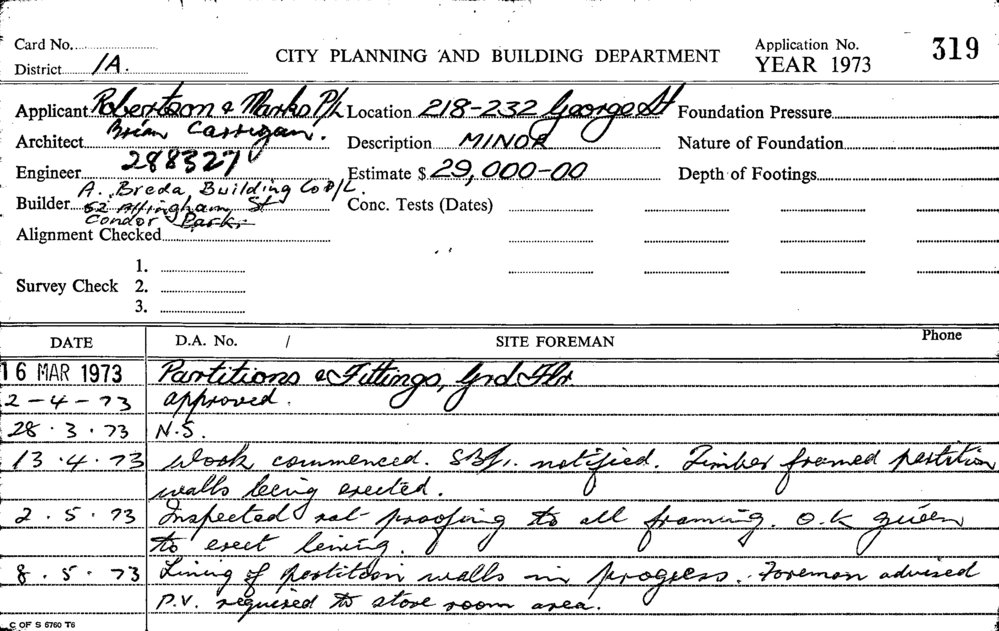 Card No.
CITY PLANNING AND BUILDING DEPARTMENT
Application No. 319
District 1A.
YEAR 1973
Applicant Robertson & Marks P/L Location 218-232 George St Foundation Pressure
Architect Brian Carrigan. Description MINOR Nature of Foundation
Engineer 288327 Estimate $ 29,000-00 Depth of Footings
A. Breda Building Co P/L.
Builder 52 St Conc. Tests (Dates)
Condor Park
Alignment Checked
1.
Survey Check 2.
3.
DATE D.A. No. / SITE FOREMAN Phone
16 MAR 1973 Partitions & Fittings, Grd Flr
2-4-73 approved.
28.3.73 N.S.
13.4.73 Work commenced. notified. Timber framed partition
walls being erected.
2.5.73 Inspected rat-proofing to all framing. O.K given
to erect lining.
8.5.73 Lining of partition walls in progress. Foreman advised
P.V. required to store room area.
C OF S 5760 T6